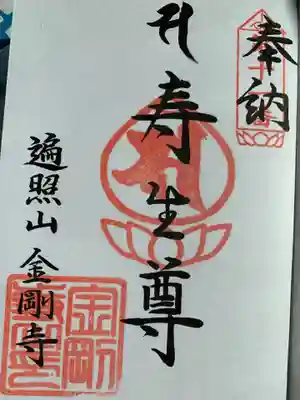 奉納
寿生尊
遍照山 金剛寺
金剛